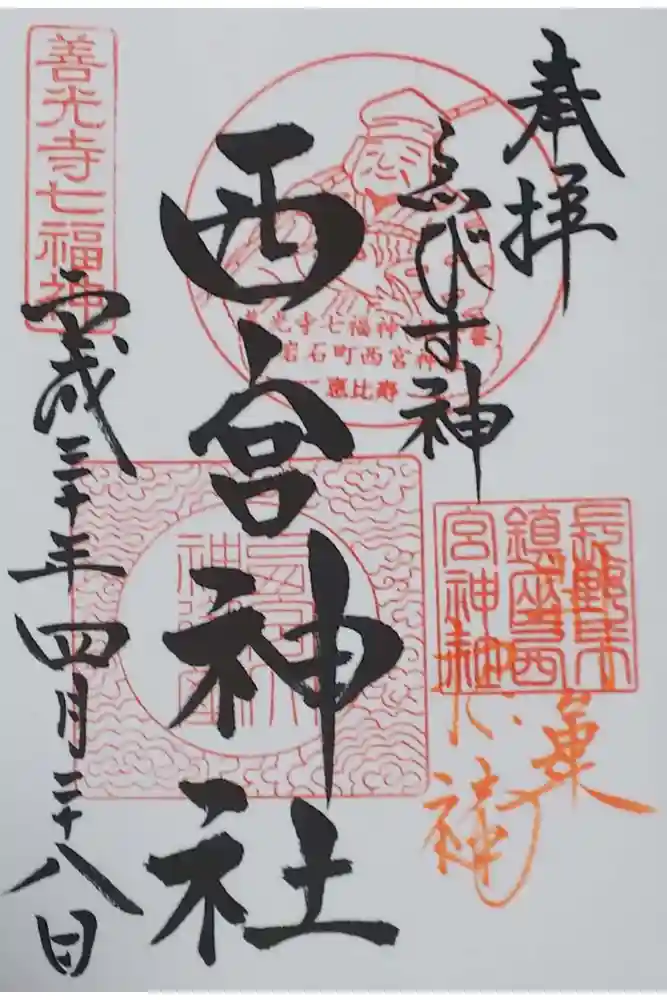 奉拝
ゑびす神
西宮神社
平成三十年四月二十八日
善光寺七福神
善光寺七福神
岩石町西宮神社
恵比寿
長野市
鎮座西
宮神社